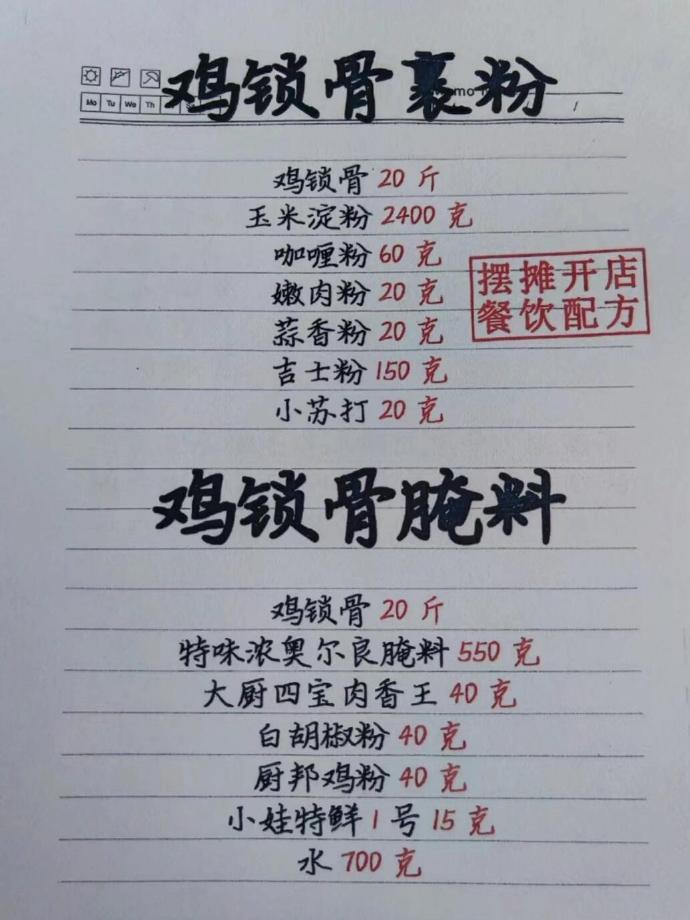 鸡锁骨裹粉
Mo Tu We Th
鸡锁骨 20 斤
玉米淀粉 2400 克
咖喱粉 60 克
嫩肉粉 20 克
蒜香粉 20 克
吉士粉 150 克
小苏打 20 克
摆摊开店
餐饮配方
鸡锁骨腌料
鸡锁骨 20 斤
特味浓奥尔良腌料 550 克
大厨四宝肉香王 40 克
白胡椒粉 40 克
厨邦鸡粉 40 克
小娃特鲜 1 号 15 克
水 700 克